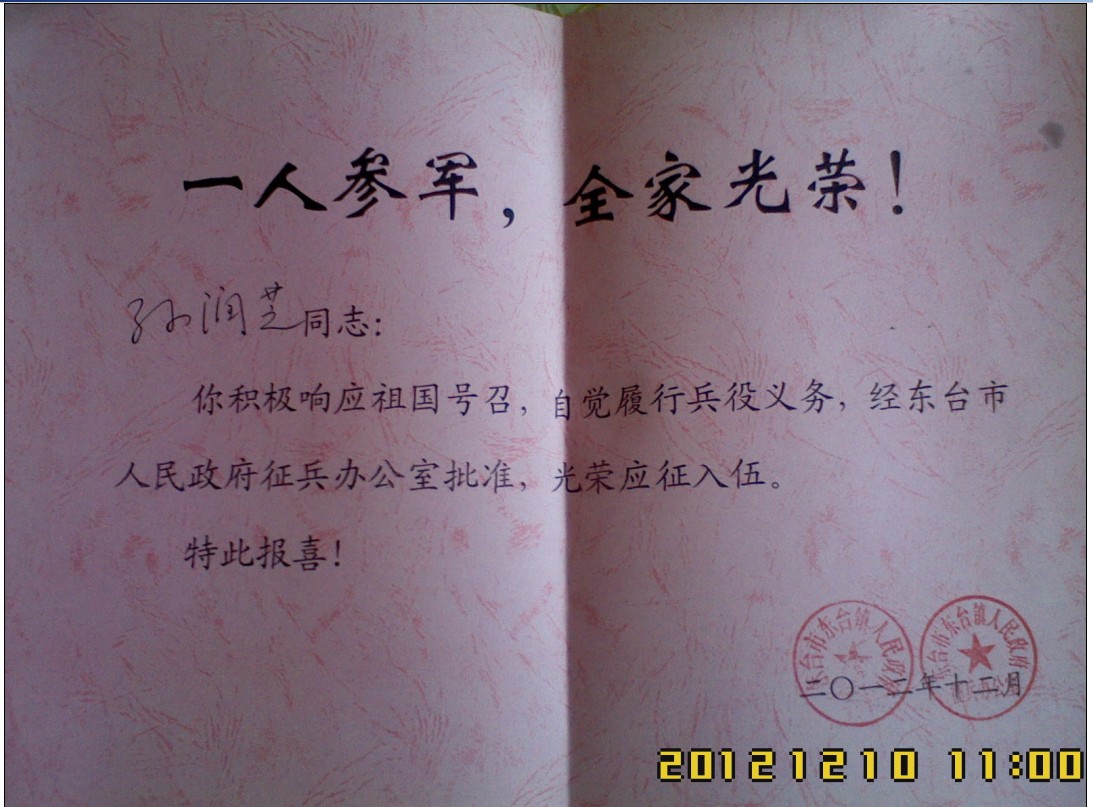 一人参军，全家光荣！
孙润芝同志：
你积极响应祖国号召，自觉履行兵役义务，经东台市
人民政府征兵办公室批准，光荣应征入伍。
特此报喜！
东台市东台镇人民政府
东台市东台镇人民政府
二〇一二年十二月
20121210 11:00